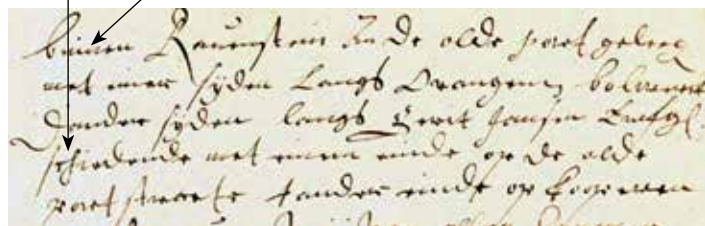 binnen Ravenstein In de olde poort geleg
met einer syden Langs Orangien bolwerck
dander syden langs Gerit Jansen Erffg
schietende met einen einde op de olde
poort straete t ander einde op